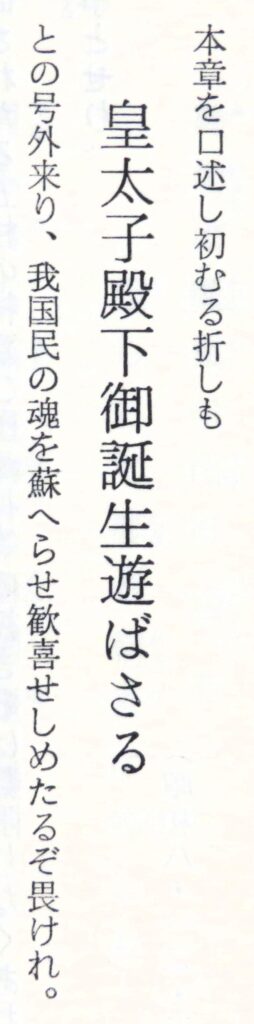 本章を口述し初むる折しも
皇太子殿下御誕生遊ばさる
との号外来り、我国民の魂を蘇へらせ歓喜せしめたるぞ畏けれ。